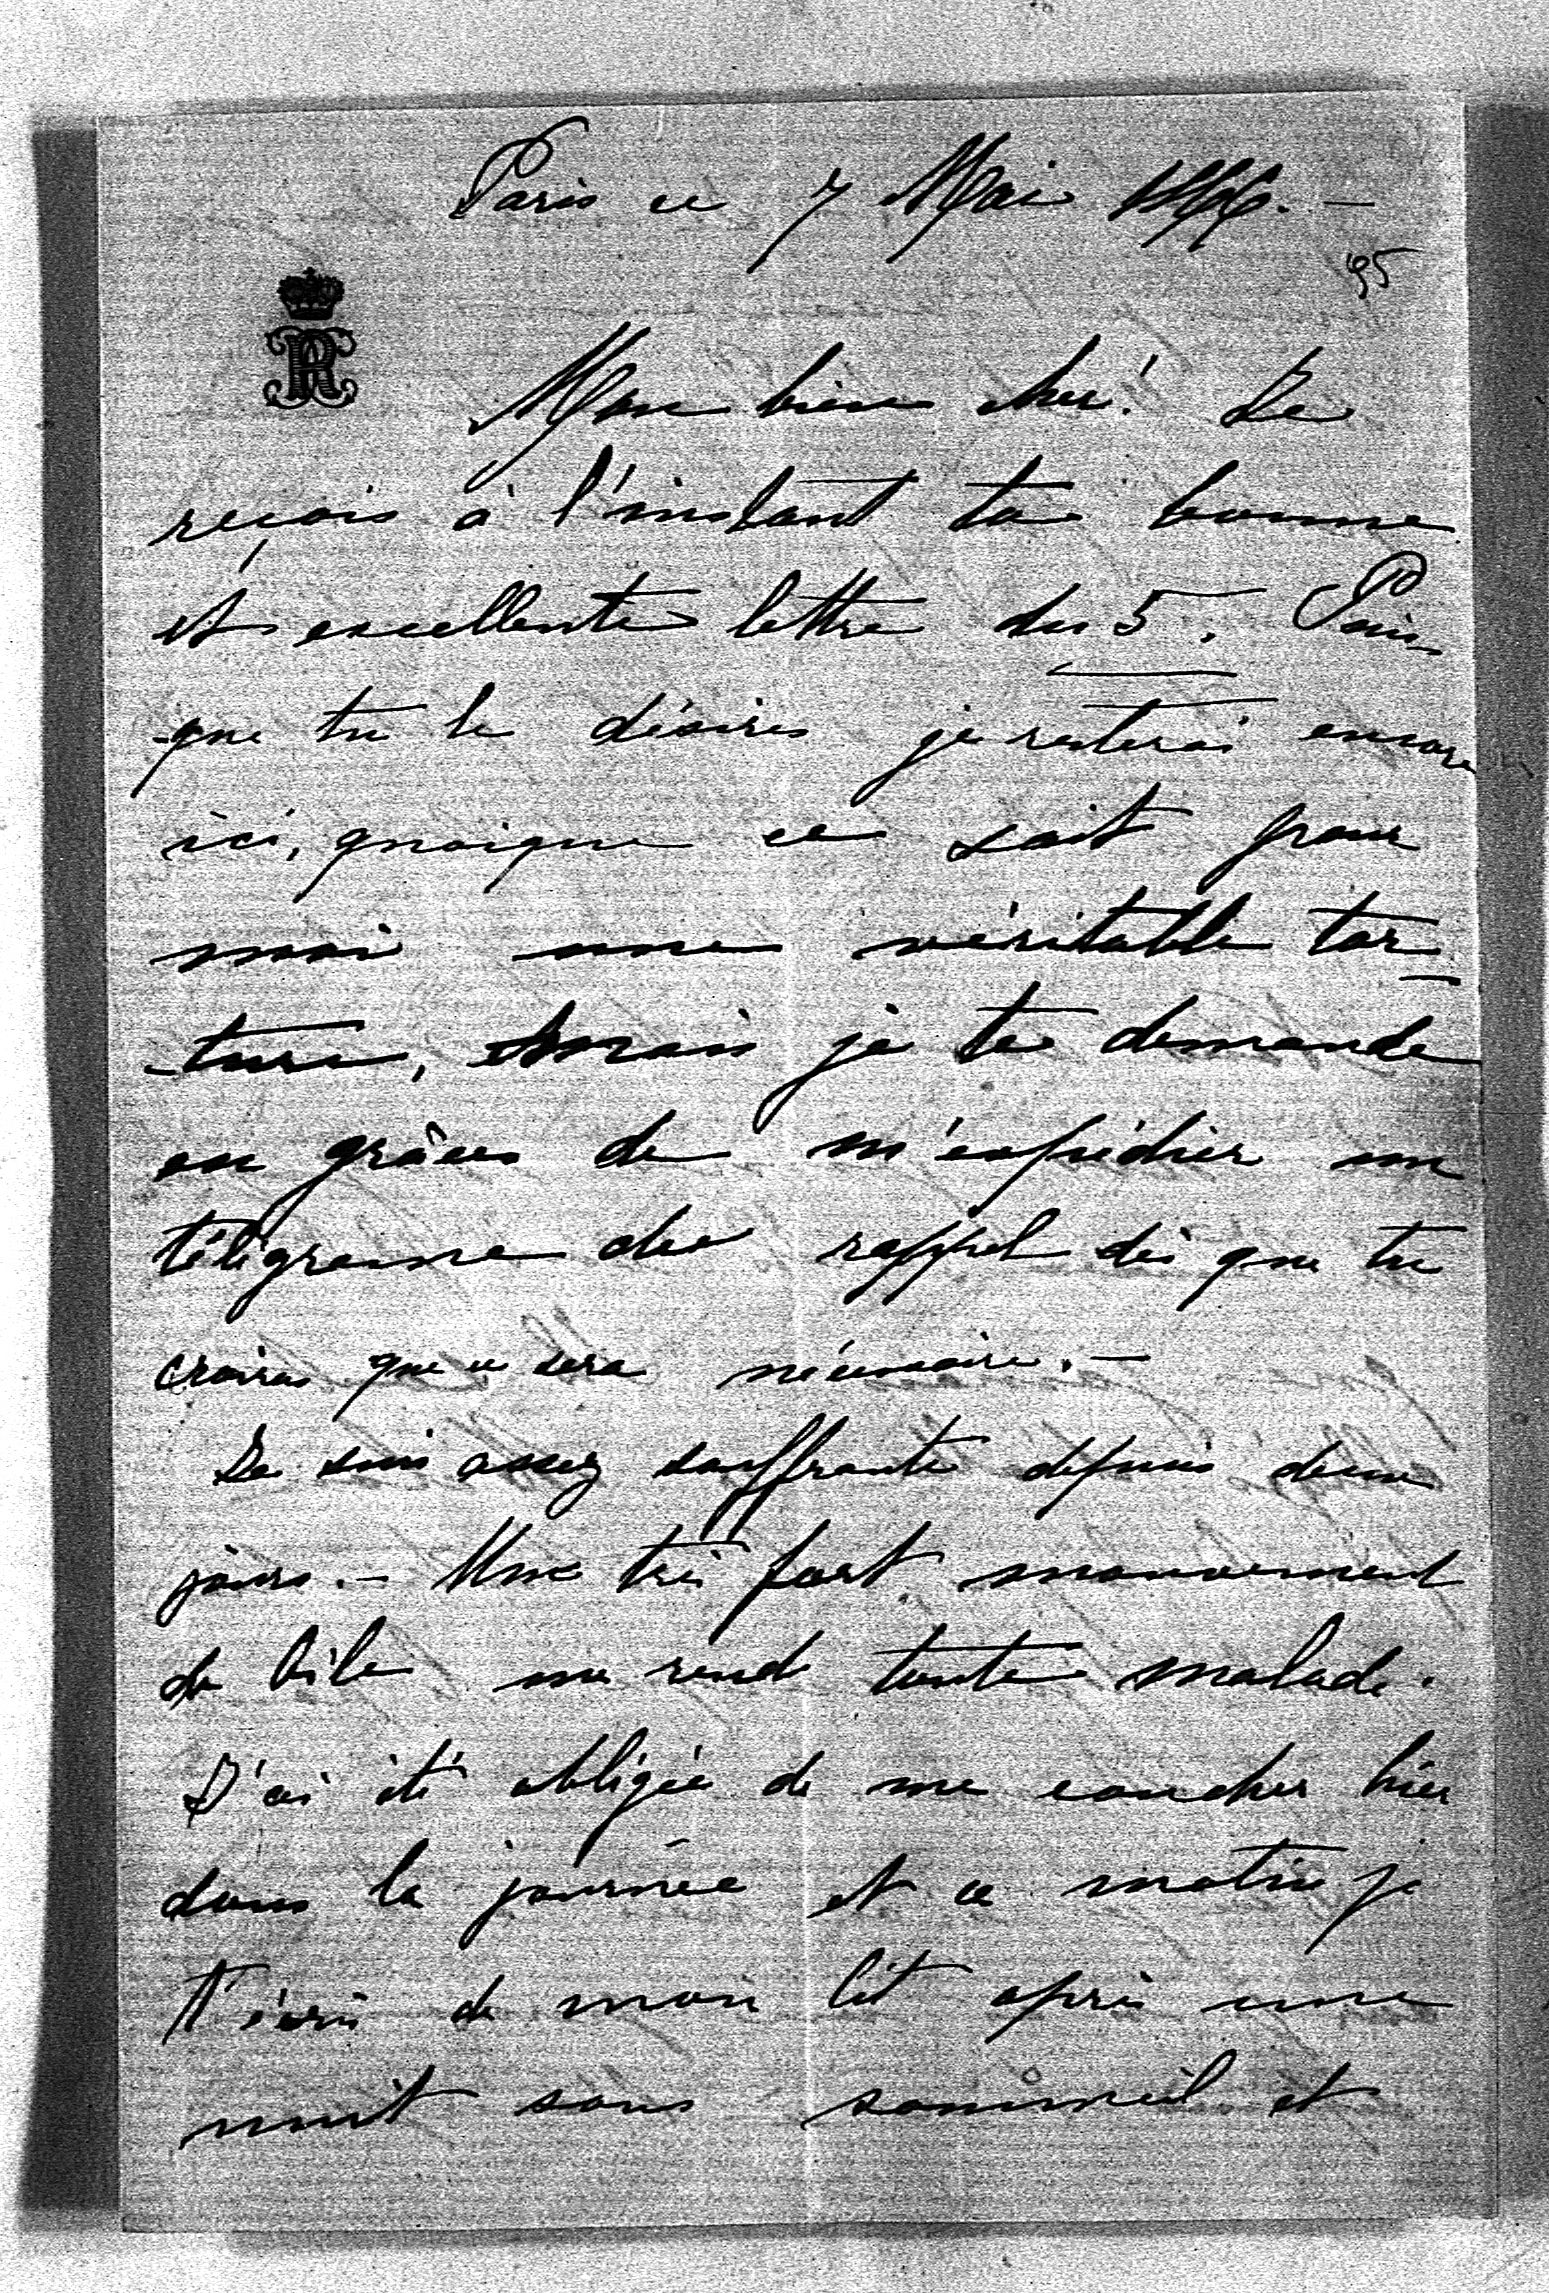 Paris ce 7 Mai
95
Mon bien cher! Je
reçois à l'instant ta bonne
et excellente lettre du 5. Puis-
-que tu le désires je resterai encore
ici, quoique ce soit pour
moi une véritable tor-
-ture, mais je te demande
en grâces de m'expédier un
télégramme de rappel dès que tu
croiras que ce sera nécessaire. —
Je suis assez souffrante depuis deux
jours. — Un très fort mouvement
de bile me rend toute malade.
J'ai été obligée de me coucher hier
dans la journée et ce matin je
t'écris de mon lit après une
nuit sans sommeil et